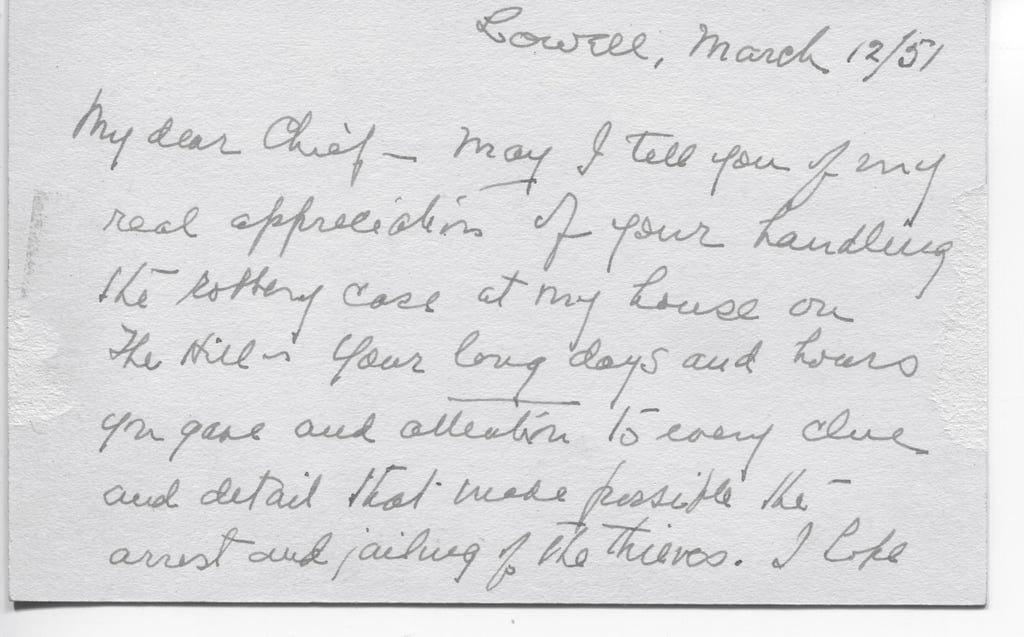 Lowell, March 12/51
My dear Chief - May I tell you of my
real appreciation of your handling
the robbery case at my house on
The Hill - Your long days and hours
you gave and attention to every clue
and detail that made possible the
arrest and jailing of the thieves. I hope